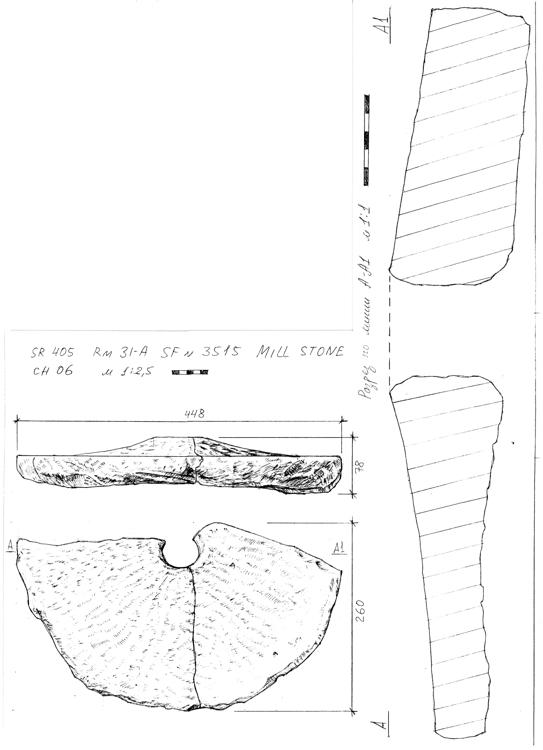 SR 405 RM 31-A SF N 3515 MILL STONE
CH 06 м 1:2,5
448
78
A
A1
260
A1
Разрез по линии A-A1 м 1:1
A